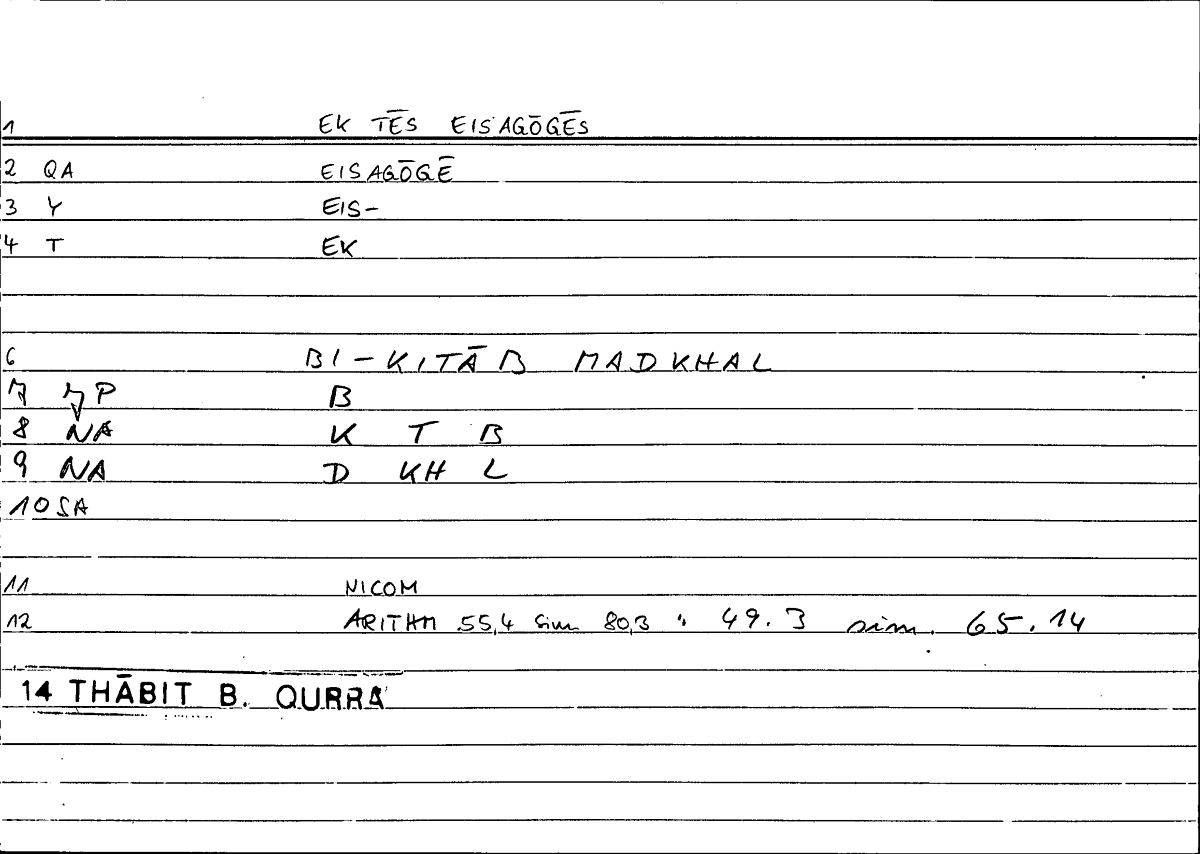 1 EK TĒS EISAGŌGĒS
2 QA EISAGŌGĒ
3 Y EIS-
4 T EK
6 BI-KITĀB MADKHAL
7 P B
8 NA K T B
9 NA D KH L
10 SA
11 NICOM
12 ARITHM 55,4 sim 80,3 49.3 sim. 65.14
14 THĀBIT B. QURRA